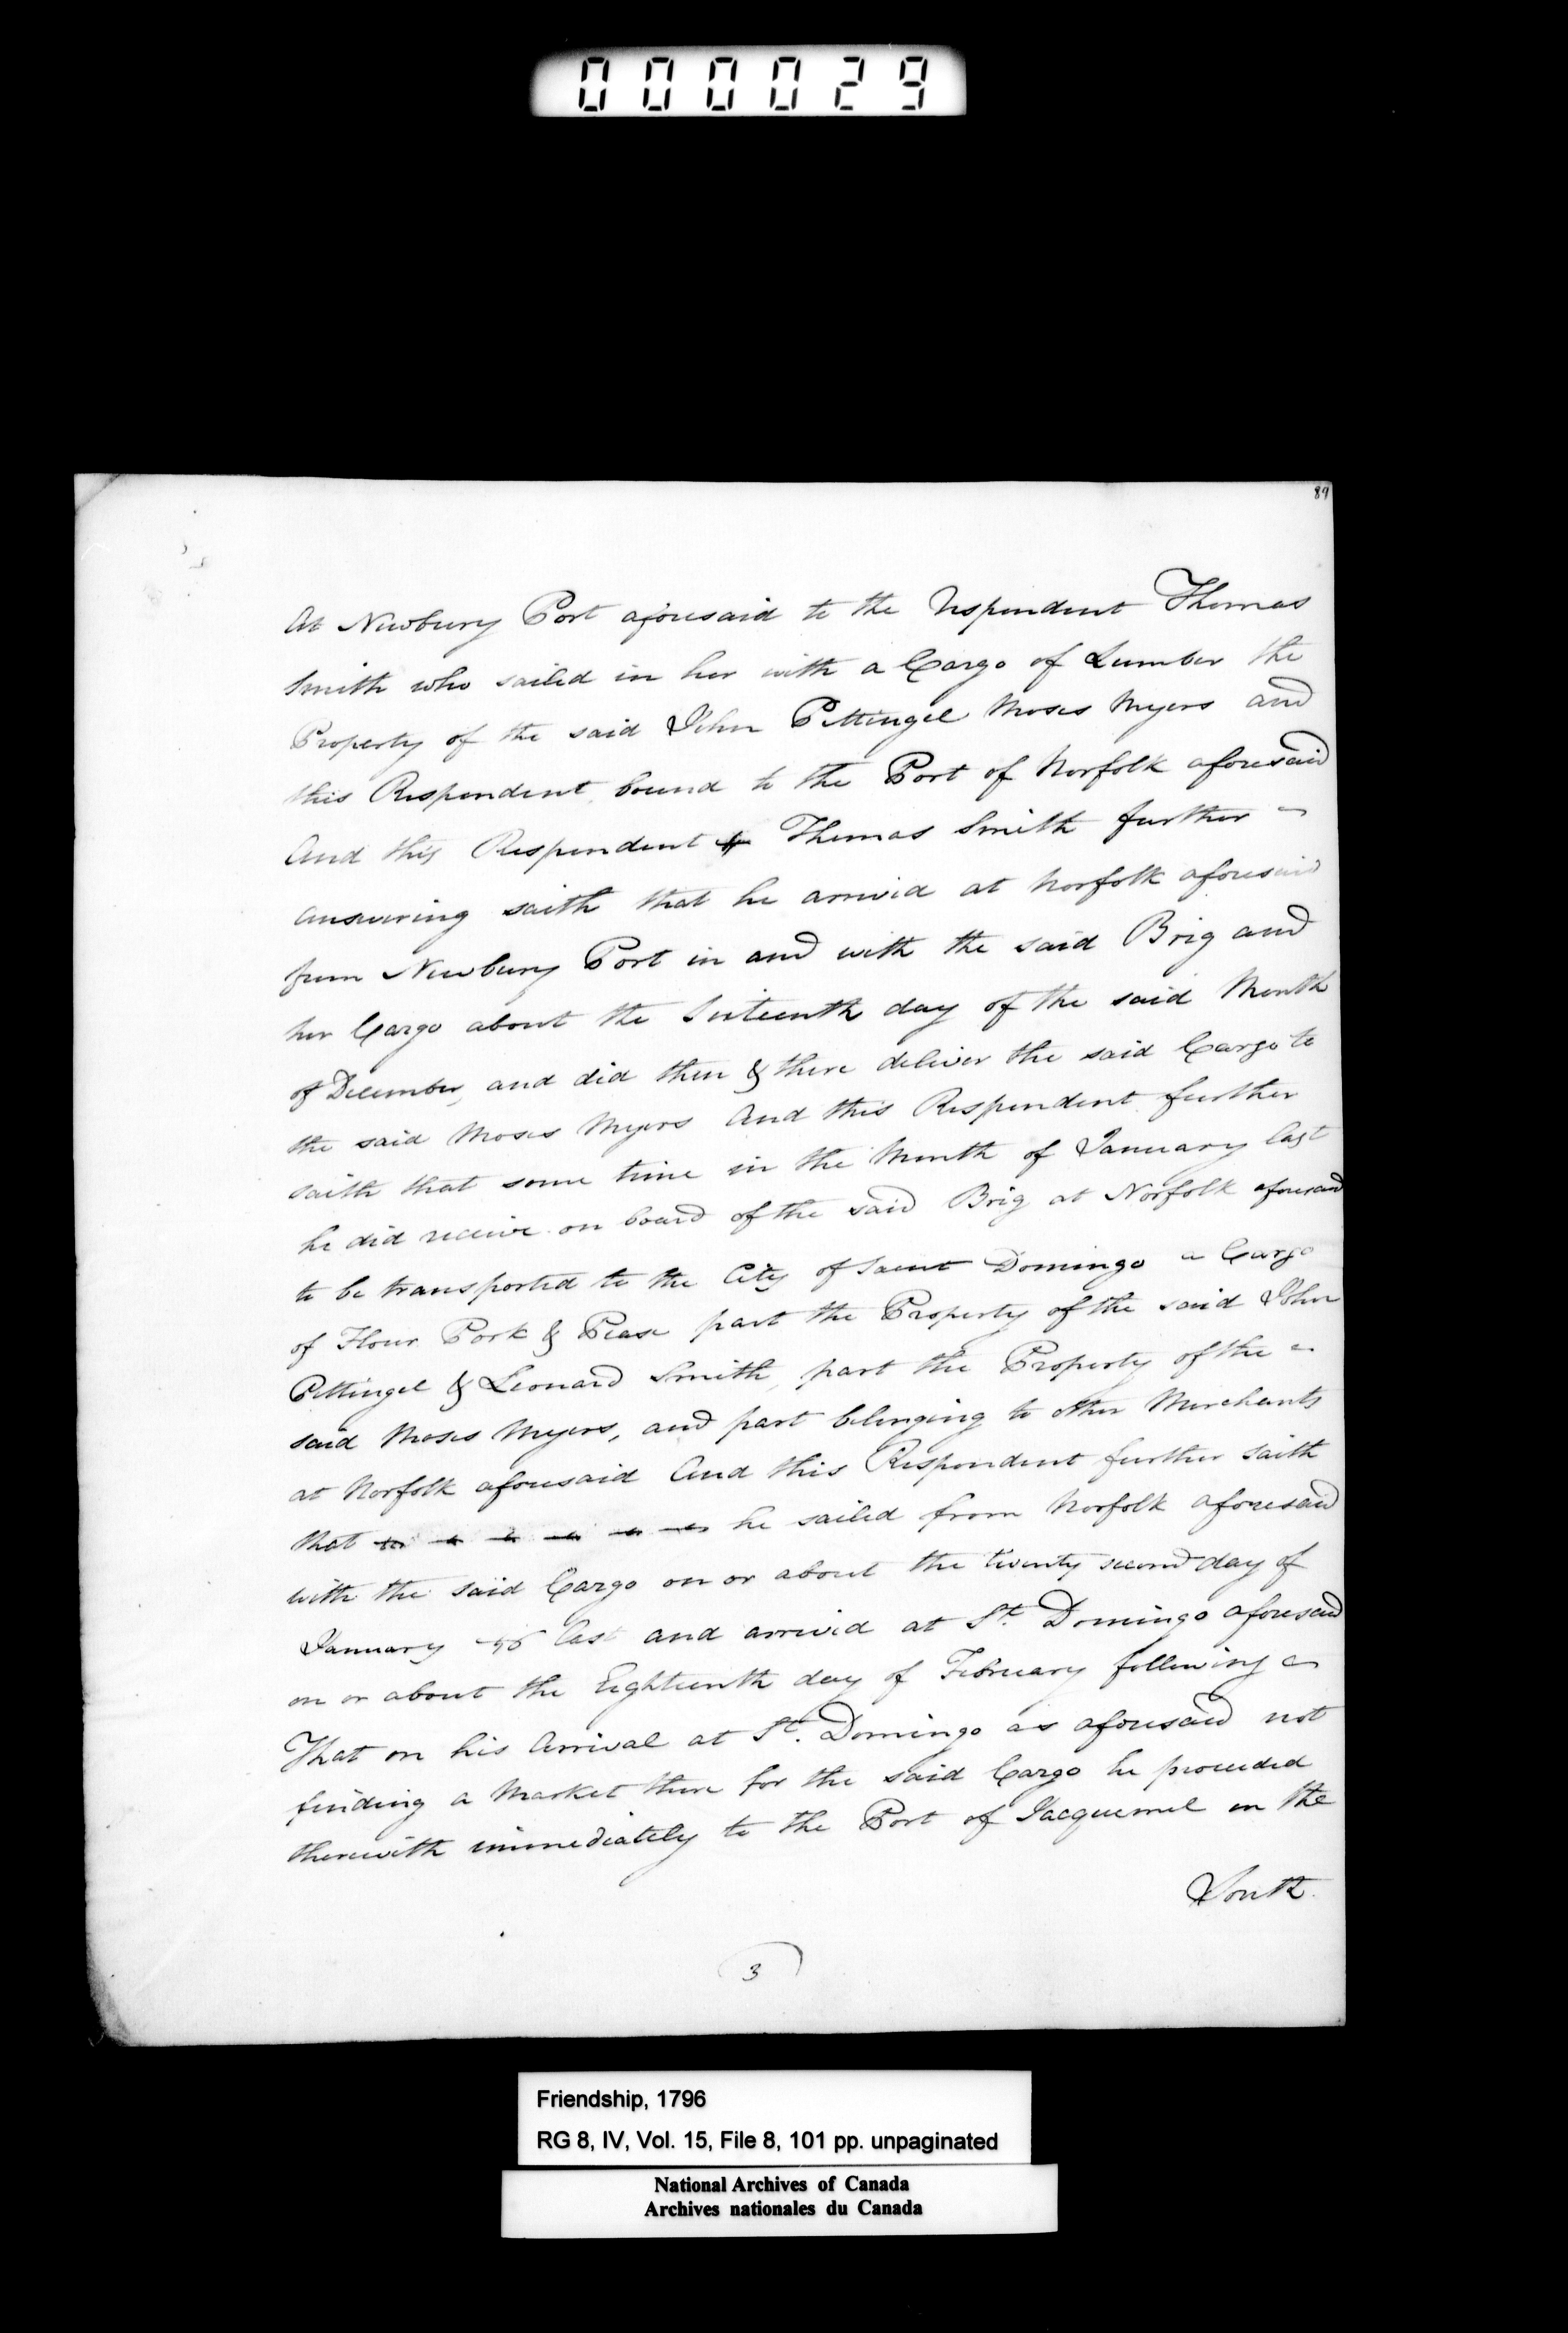 000029
89
At Newbury Port aforesaid to the Respondent Thomas
Smith who sailed in her with a Cargo of Lumber the
Property of the said John Pettingel Moses Myers and
this Respondent bound to the Port of Norfolk aforesaid
And this Respondent Thomas Smith further
answering saith that he arrived at Norfolk aforesaid
from Newbury Port in and with the said Brig and
her Cargo about the Sixteenth day of the said Month
of December, and did then & there deliver the said Cargo to
the said Moses Myers And this Respondent further
saith that some time in the Month of January last
he did receive on board of the said Brig at Norfolk aforesaid
to be transported to the City of Saint Domingo a Cargo
of Flour Pork & Pease part the Property of the said John
Pettingel & Leonard Smith, part the Property of the
said Moses Myers, and part belonging to other Merchants
at Norfolk aforesaid And this Respondent further saith
that he sailed from Norfolk aforesaid
with the said Cargo on or about the twenty second day of
January last and arrived at St. Domingo aforesaid
on or about the Eighteenth day of February following
That on his Arrival at St. Domingo as aforesaid not
finding a Market there for the said Cargo he proceeded
therewith immediately to the Port of Jacquemel on the
South
3
Friendship, 1796
RG 8, IV, Vol. 15, File 8, 101 pp. unpaginated
National Archives of Canada
Archives nationales du Canada